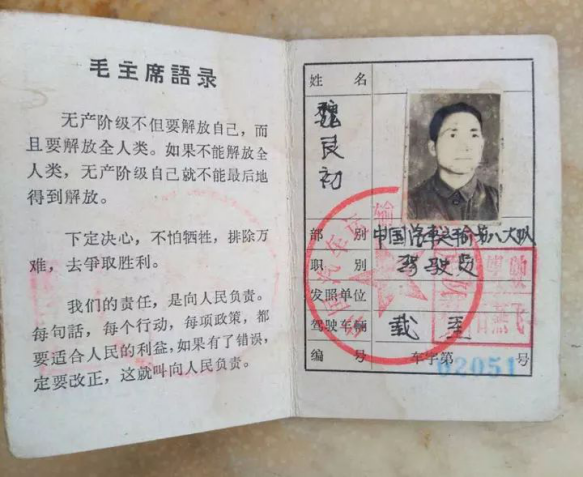 毛主席語录
无产阶级不但要解放自己，而
且要解放全人类。如果不能解放全
人类，无产阶级自己就不能最后地
得到解放。
下定决心，不怕牺牲，排除万
难，去爭取胜利。
我们的责任，是向人民负责。
每句話，每个行动，每项政策，都
要适合人民的利益，如果有了错误，
定要改正，这就叫向人民负责。
姓 名
魏良初
部 别 中国汽車运输第八大队
职 别 驾驶员
发照单位
驾驶车辆 载
编 号 车字第 02051 号